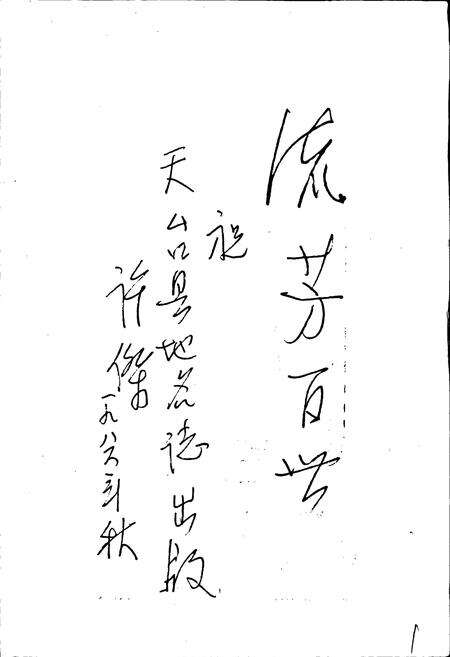 流芳百世
祝
天台县地名誌出版
许傑
一九八六年秋
1